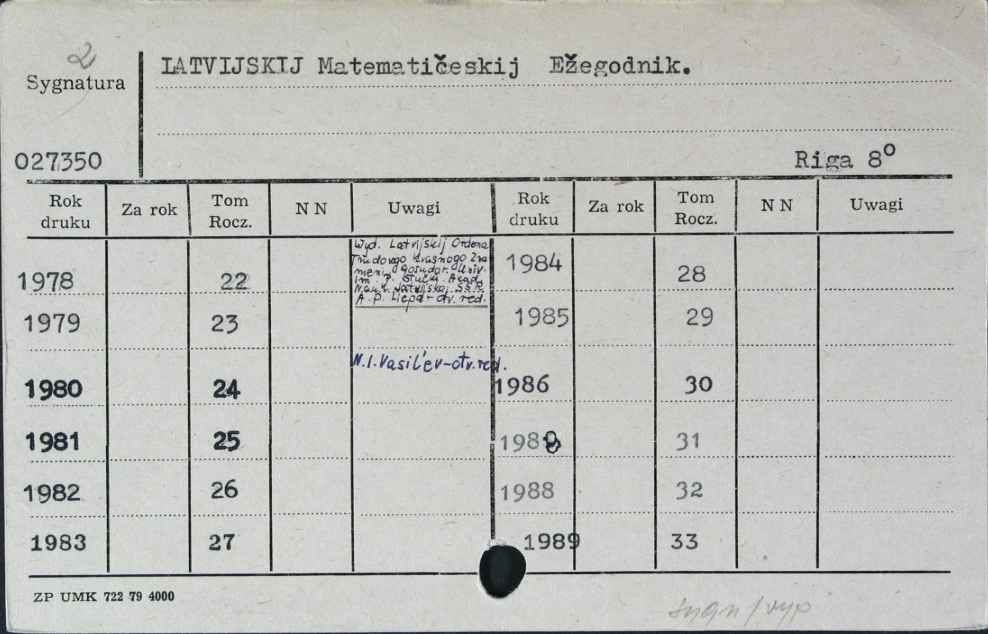 2
Sygnatura
027350
ŁATVIJSKIJ Matematičeskij Ežegodnik.
Riga 8°
Rok druku Za rok Tom Rocz. N N Uwagi Rok druku Za rok Tom Rocz. N N Uwagi
Wyd. Latvijskij Ordena
Trudovogo Krasnogo Zna
meni Gosudor. Univ.
im. P. Stučki Akad.
Nauk Latvijskoj SSR.
A.P. Liepa-otv. red.
1978 22 1984 28
1979 23 1985 29
N.I. Vasil'ev-otv.red.
1980 24 1986 30
1981 25 1988 31
1982 26 1988 32
1983 27 1989 33
ZP UMK 722 79 4000
sygn/wyp